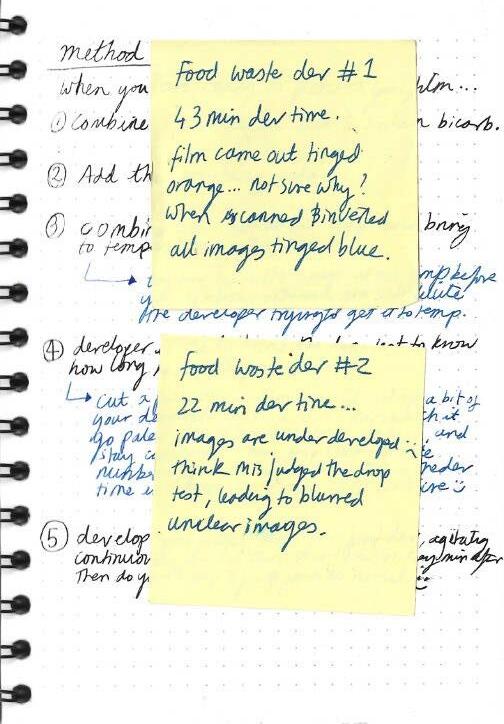 method
when you
film...
① Combine
n bicarb.
② Add th
③ combin
bring
to tempe
mp before
the developer trying to get it to temp.
④ developer
to know
how long
Cut a
a bit of
your de
ch it
go pale
, and
stay
numbe
time
ure ☺
⑤ develop
, agitating
continuou
ay min after
Then do y
Food waste dev #1
43 min dev time.
film came out tinged
orange... not sure why?
when scanned & inverted
all images tinged blue.
Food waste dev #2
22 min dev time...
images are underdeveloped :(
think misjudged the drop
test, leading to blurred
unclear images.